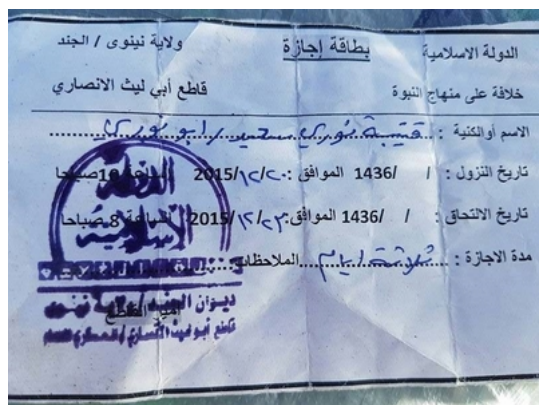 الدولة الاسلامية
بطاقة إجازة
ولاية نينوى / الجند
خلافة على منهاج النبوة
قاطع أبي ليث الانصاري
الاسم أوالكنية : قتيبة نوري سعيد / ابو نوري
تاريخ النزول : / /1436 الموافق : ٢٠/١٢/2015 الساعة 10 صباحا
تاريخ الالتحاق : / /1436 الموافق : ٢٣/١٢/2015 الساعة 8 صباحا
مدة الاجازة : ثلاثة ايام الملاحظات
الدولة
الاسلامية
ديوان الجند / ولاية نينوى
أمير القاطع
قاطع أبو ليث الأنصاري / العسكري